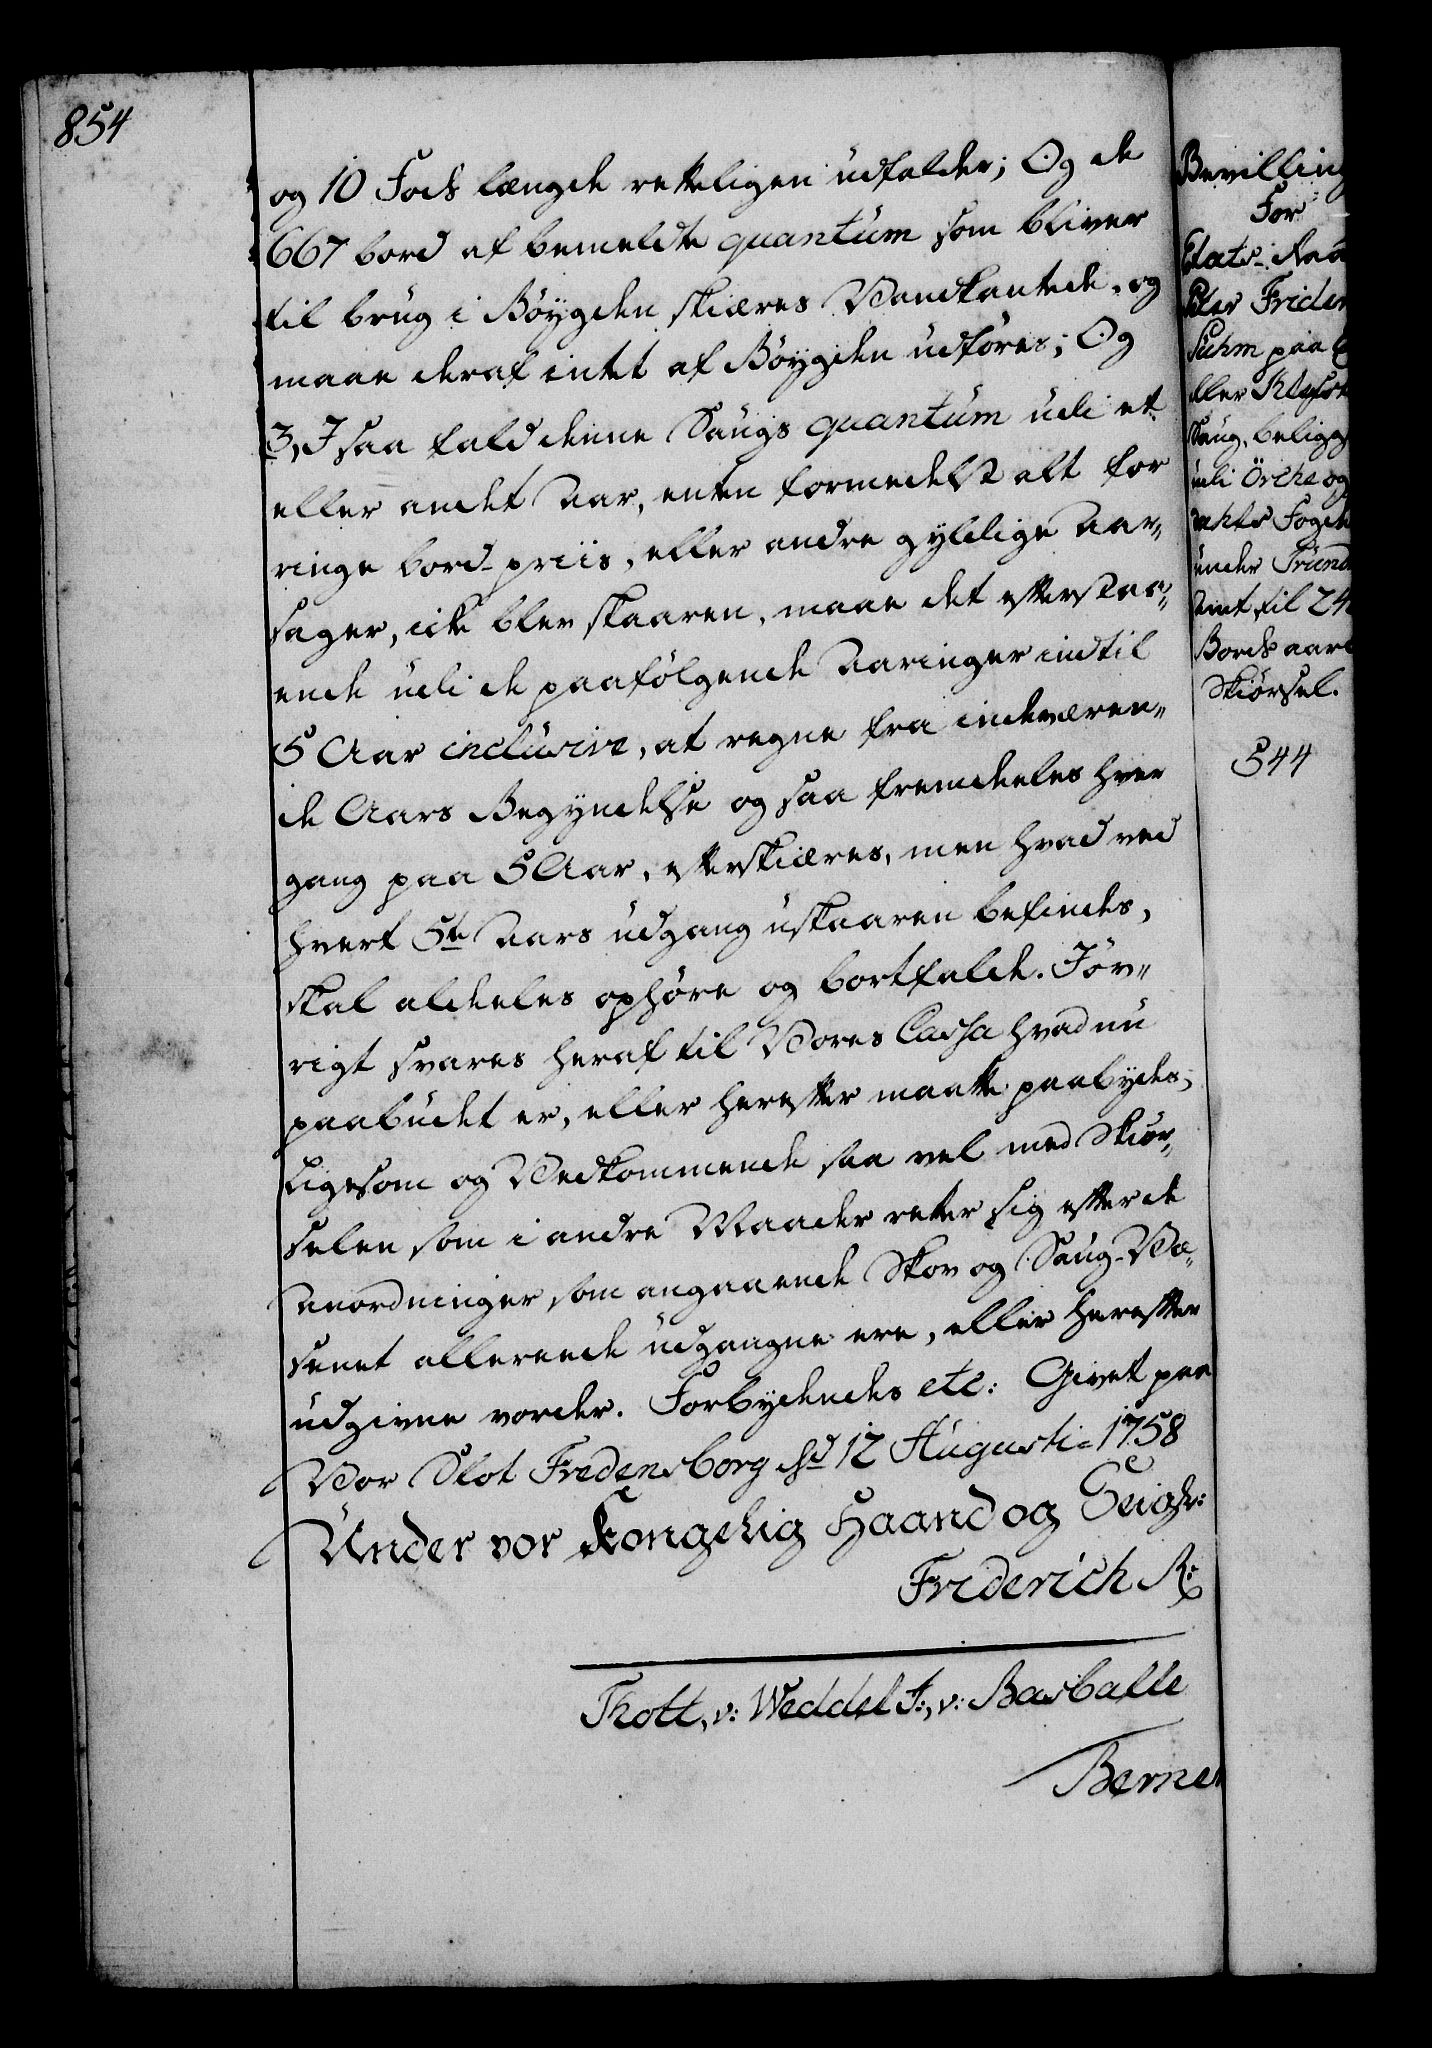 854
og 10 Fods længde retteligen udfalder; Og de
667 bord af bemeldte quantum som bliver
til brug i Bøygden skiæres Vandkantede, og
maae deraf intet af Bøygden udføres; Og
3, I saa fald denne Saugs quantum udi et
eller andet Aar, enten formedelst alt for
ringe bord-priis, eller andre gyldige Aar„
sager, icke blev skaaren, maae det efterstaa„
ende udi de paafølgende Aaringer indtil
5 Aar inclusive, at regne fra indeværen„
de Aars Begyndelse og saa fremdeeles hver
gang paa 5 Aar, efterskiæres, men hvad ved
hvert 5te Aars udgang uskaaren befindes,
skal aldeeles ophøre og bortfalde. I øv„
rigt svares heraf til Vores Cassa hvad nu
paabudet er, eller herefter maatte paabydes;
Ligesom og Vedkommende saa vel med Skiør„
selen som i andre Maader retter sig efter de
Anordninger som angaaende Skov og Saug-Væ„
senet allereede udgangne ere, eller herefter
udgivne vorder. Forbydendes etc: Givet paa
Vor Slot Fredensborg dd 12 Augusti 1758
Under vor Kongelig Haand og Seigl:
Friderich R:
Thott, v: Weddel F:, v: Barballe
Berner
Bevilling
For
Etats-Raa
Peter Frider
Suhm paa
eller Klefst
Saug, beligg
udi Örche og
Fogde
under Trund
Amt til 24
Bords aarl
Skiørsel.
544